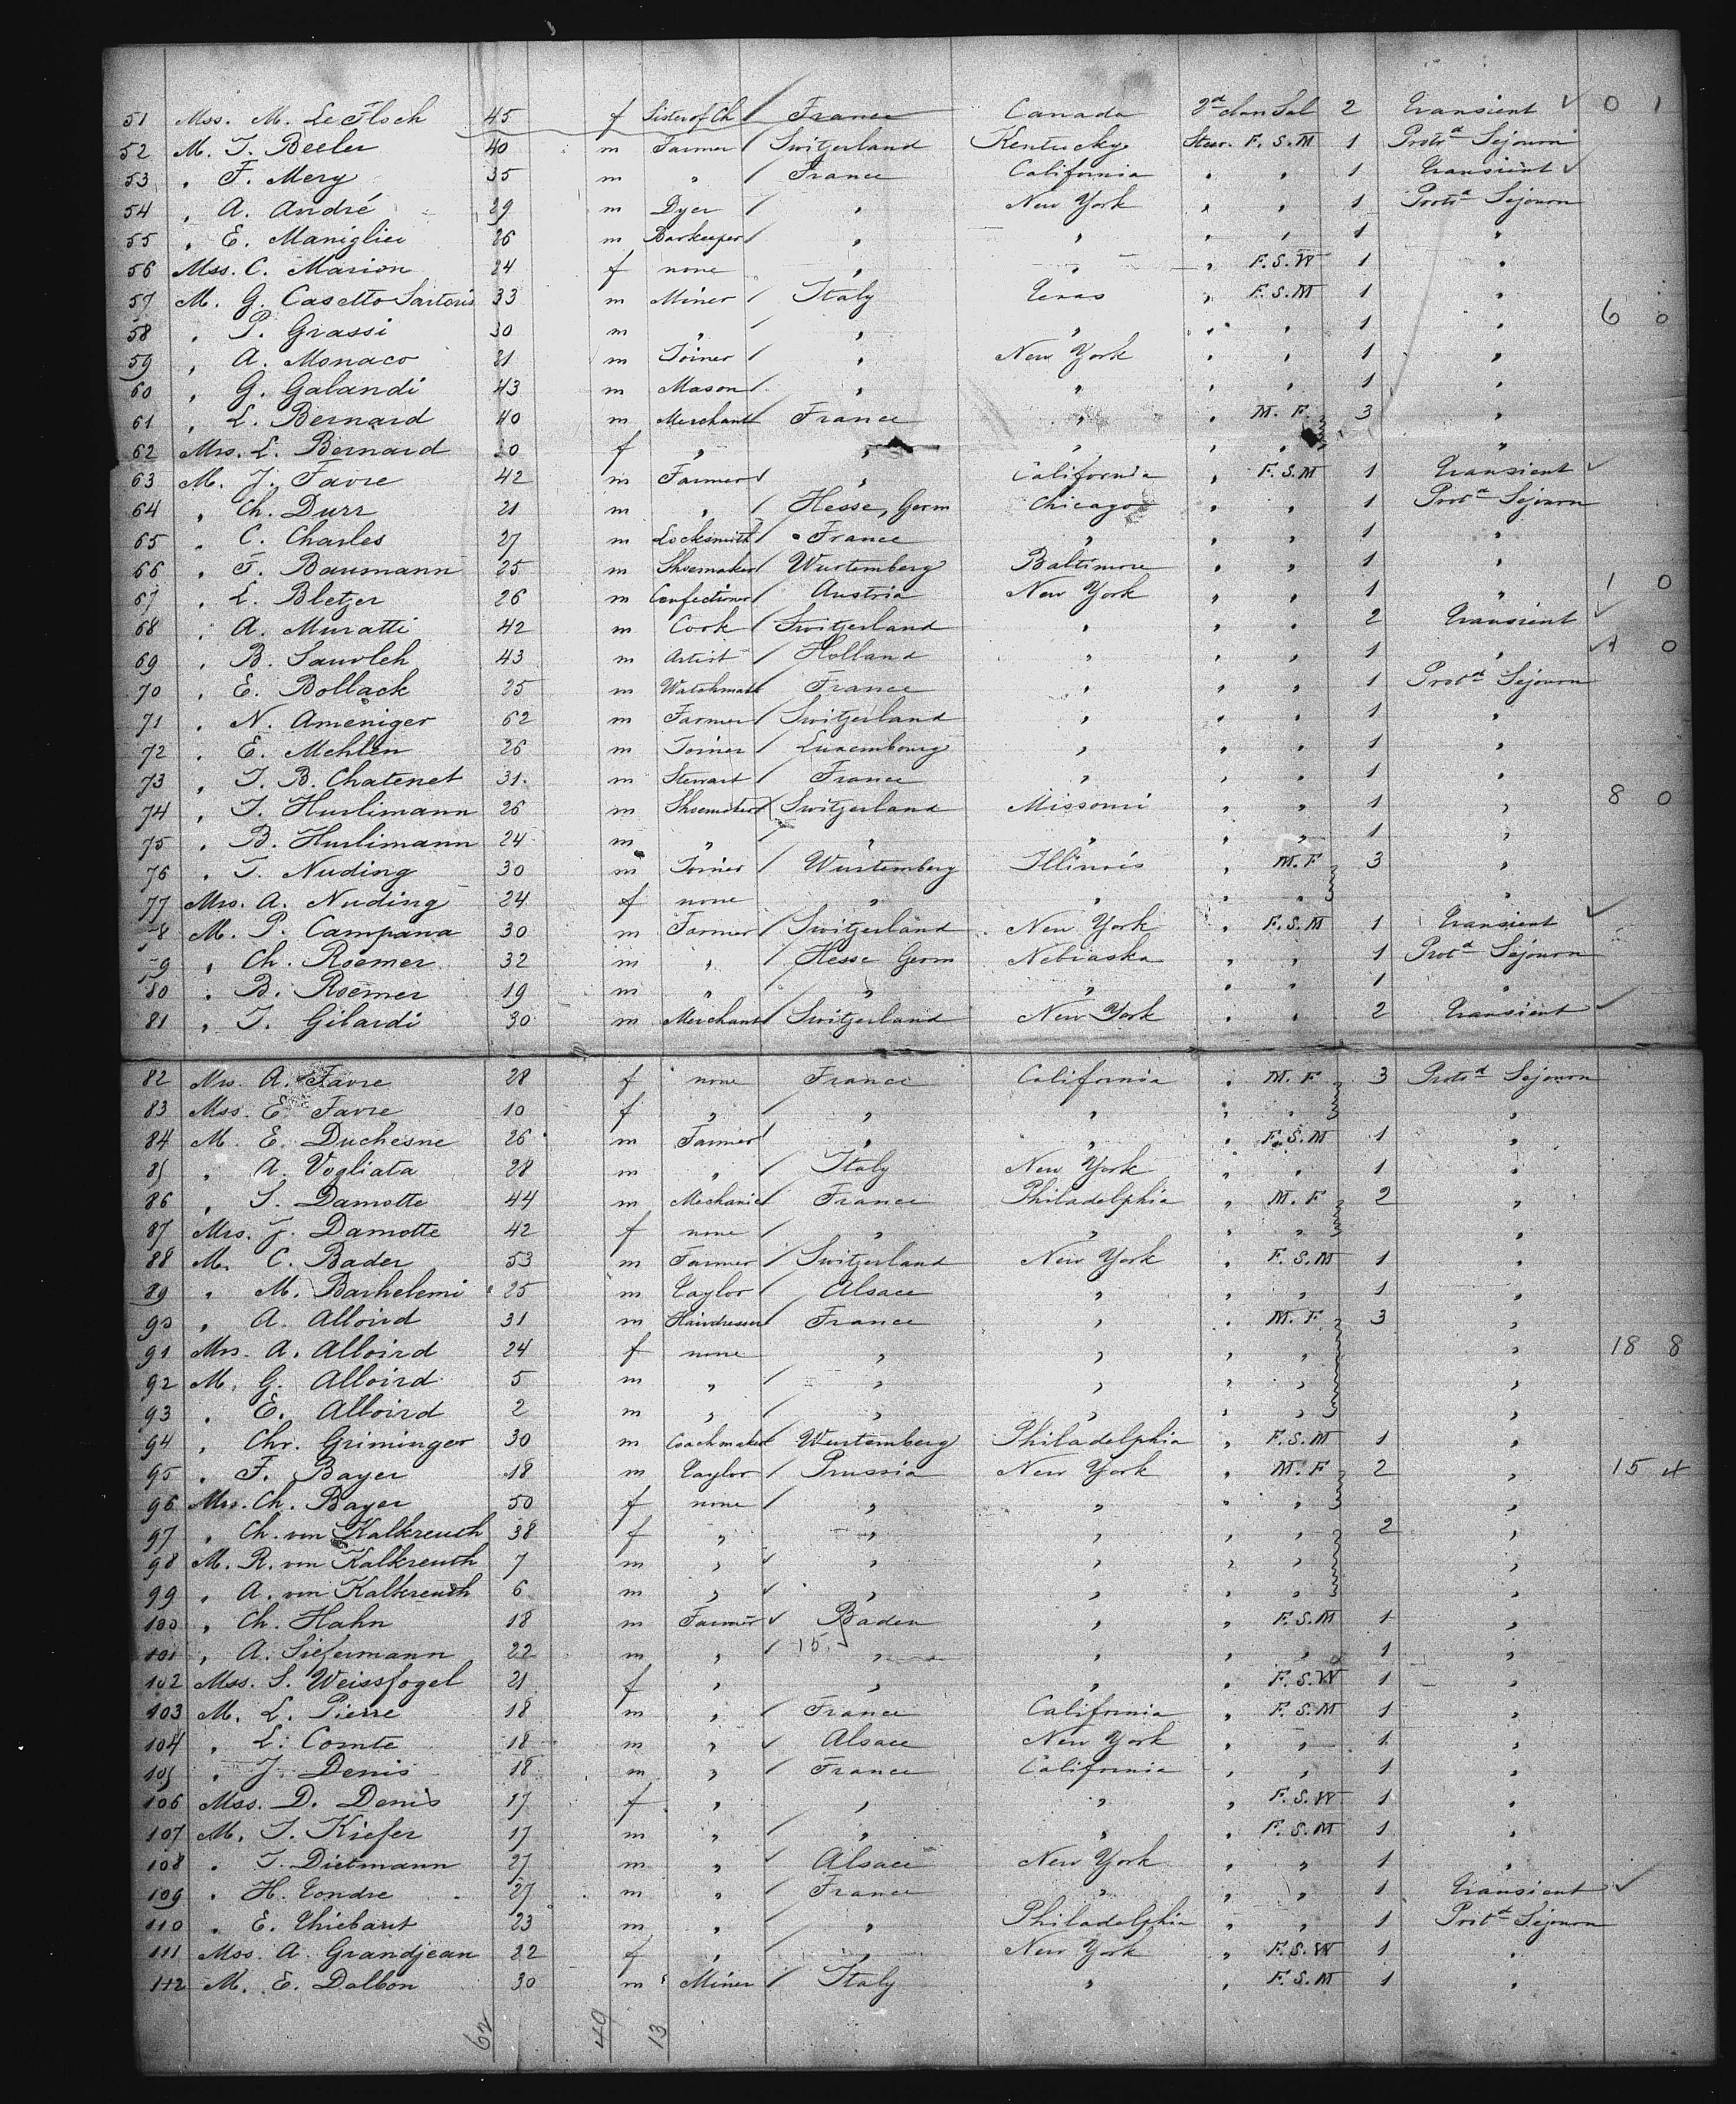 51 Mss. M. Le Floch 45 f Sister of Ch / France Canada 2d class Sal 2 Transient ✓ 0 1
52 M. J. Beeler 40 m Farmer / Switzerland Kentucky Steer. F. S. M 1 Protrd Sejourn
53 " F. Mery 35 m " / France California " " 1 Transient ✓
54 " A. André 29 m Dyer / " New York " " 1 Protrd Sejourn
55 " E. Maniglier 26 m Barkeeper / " " " " 1 "
56 Mss. C. Marion 24 f none " " " F. S. W 1 "
57 M. G. Casetto Sartoris 33 m Miner / Italy Texas " F. S. M 1 "
58 " P. Grassi 30 m " / " " " " 1 " 6 0
59 " A. Monaco 21 m Joiner / " New York " " 1 "
60 " G. Galandi 43 m Mason / " " " " 1 "
61 " L. Bernard 40 m Merchant France " " M. F. 3 "
62 Mrs. L. Bernard f " " " " " "
63 M. J. Favre 42 m Farmer / " California " F. S. M 1 Transient ✓
64 " Ch. Durr 21 m " / Hesse, Germ Chicago " " 1 Protd Sejourn
65 " C. Charles 27 m Locksmith France " " " 1 "
66 " F. Baumann 25 m Shoemaker / Wurtemberg Baltimore " " 1 "
67 " L. Bletzer 26 m Confectioner / Austria New York " " 1 " 1 0
68 " A. Muratti 42 m Cook / Switzerland " " " 2 Transient ✓
69 " B. 43 m Artist / Holland " " " 1 " ✓ 1 0
70 " E. Bollack 25 m Watchmak / France " " " 1 Protd Sejourn
71 " N. Ameniger 62 m Farmer / Switzerland " " " 1 "
72 " E. Mehlen 26 m Joiner / Luxembourg " " " 1 "
73 " J. B. Chatenet 31 m Stewart / France " " " 1 "
74 " J. Hurlimann 26 m Shoemaker / Switzerland Missouri " " 1 " 8 0
75 " B. Hurlimann 24 m " / " " " " 1 "
76 " J. Nuding 30 m Joiner / Wurtemberg Illinois " M. F 3 "
77 Mrs. A. Nuding 24 f none " " " " "
78 M. P. Campana 30 m Farmer / Switzerland New York " F. S. M 1 Transient ✓
79 " Ch. Roemer 32 m " / Hesse Germ Nebraska " " 1 Protd Sejourn
80 " B. Roemer 19 m " / " " " " 1 "
81 " J. Gilardi 30 m Merchant / Switzerland New York " " 2 Transient ✓
82 Mrs. A. Favre 28 f none France California " M. F 3 Protrd Sejourn
83 Mss. E. Favre 10 f " / " " " " "
84 M. E. Duchesne 26 m Farmer / " " " F. S. M 1 "
85 " A. Vogliata 28 m " / Italy New York " " 1 "
86 " J. Damotte 44 m Mechanic / France Philadelphia " M. F 2 "
87 Mrs. J. Damotte 42 f none / " " " " "
88 M. C. Bader 53 m Farmer / Switzerland New York " F. S. M 1 "
89 " M. Barhelemi 25 m Taylor / Alsace " " " 1 "
90 " A. Alloird 31 m Hairdresser / France " " M. F. 3 "
91 Mrs. A. Alloird 24 f none " " " " " 18 8
92 M. G. Alloird 5 m " / " " " " "
93 " E. Alloird 2 m " / " " " " "
94 " Chr. Griminger 30 m Coachmaker / Wurtemberg Philadelphia " F. S. M 1 "
95 " F. Bayer 18 m Taylor / Prussia New York " M. F 2 " 15 4
96 Mrs. Ch. Bayer 50 f none / " " " " "
97 " Ch. von Kalkreuth 38 f " / " " " " 2 "
98 M. R. von Kalkreuth 7 m " ✓ " " " " "
99 " A. von Kalkreuth 6 m " ✓ " " " " "
100 " Ch. Hahn 18 m Farmer ✓ Baden " " F. S. M 1 "
101 " A. Siefermann 22 m " / 15 " " " " 1 "
102 Mss. S. Weissfogel 21 f " " " " F. S. W 1 "
103 M. L. Pierre 18 m " / France California " F. S. M 1 "
104 " L. Comte 18 m " ✓ Alsace New York " " 1 "
105 " J. Denis 18 m " / France California " " 1 "
106 Mss. D. Denis 17 f " / " " " F. S. W 1 "
107 M. J. Kiefer 17 m " / " " " F. S. M 1 "
108 " J. Dietmann 27 m " ✓ Alsace New York " " 1 "
109 " H. Tondre 27 m " / France " " " 1 Transient ✓
110 " E. Thiebaut 23 m " / " Philadelphia " " 1 Protd Sejourn
111 Mss. A. Grandjean 22 f " / " New York " F. S. W 1 "
112 M. E. Dalbon 30 m Miner / Italy " " F. S. M 1 "
62 49 13